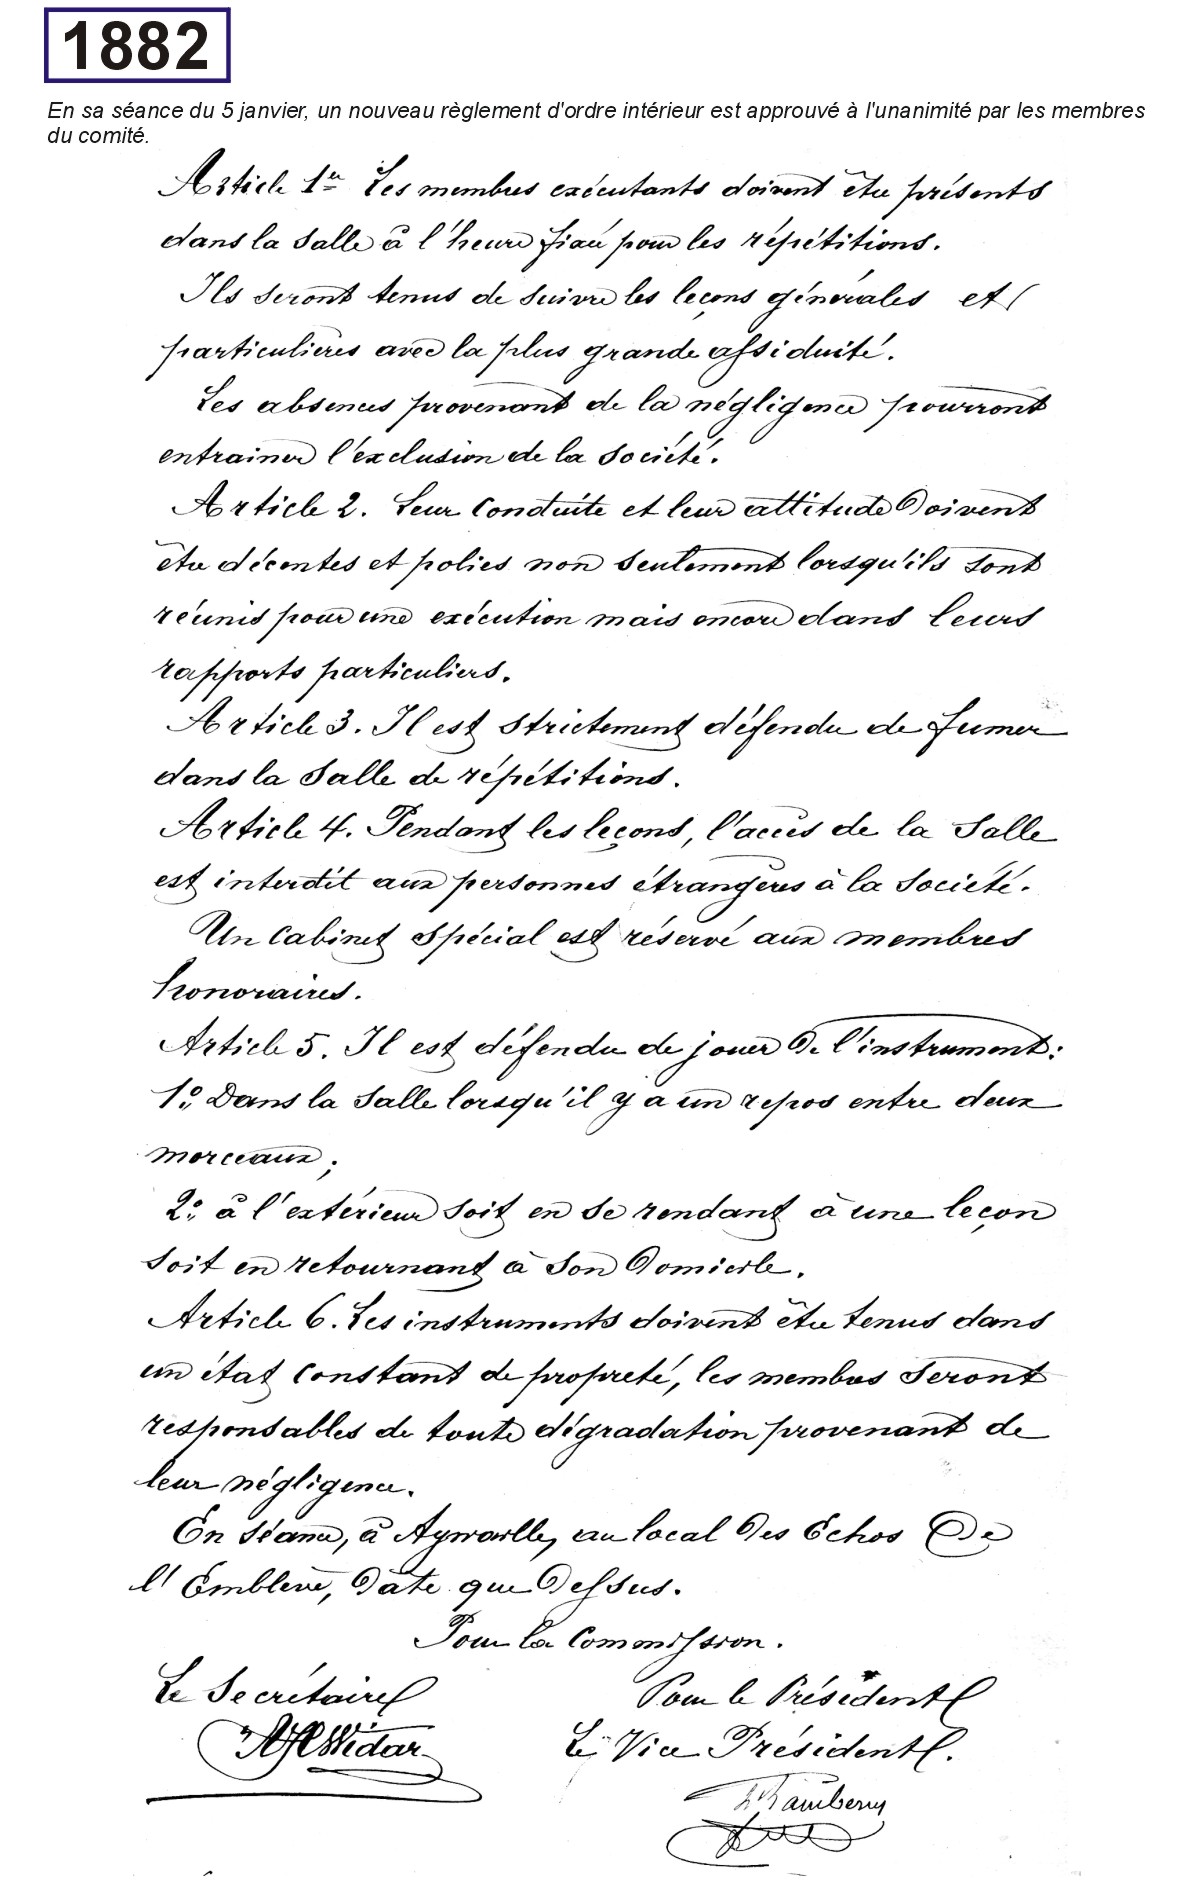 1882
En sa séance du 5 janvier, un nouveau règlement d'ordre intérieur est approuvé à l'unanimité par les membres
du comité.
Article 1er Les membres exécutants doivent être présents
dans la salle à l'heure fixée pour les répétitions.
Ils seront tenus de suivre les leçons générales et
particulières avec la plus grande assiduité.
Les absences provenant de la négligence pourront
entrainer l'exclusion de la société.
Article 2. Leur conduite et leur attitude doivent
être décentes et polies non seulement lorsqu'ils sont
réunis pour une exécution mais encore dans leurs
rapports particuliers.
Article 3. Il est strictement défendu de fumer
dans la salle de répétitions.
Article 4. Pendant les leçons, l'accès de la salle
est interdit aux personnes étrangères à la société.
Un cabinet spécial est réservé aux membres
honoraires.
Article 5. Il est défendu de jouer de l'instrument:
1° Dans la salle lorsqu'il y a un repos entre deux
morceaux;
2° à l'extérieur soit en se rendant à une leçon
soit en retournant à son domicile.
Article 6. Les instruments doivent être tenus dans
un état constant de propreté, les membres seront
responsables de toute dégradation provenant de
leur négligence.
En séance, à Aywaille, au local des Echos de
l'Emblève, date que dessus.
Pour la Commission.
Le Secrétaire
Pour le Président
Widar
Le Vice Président.